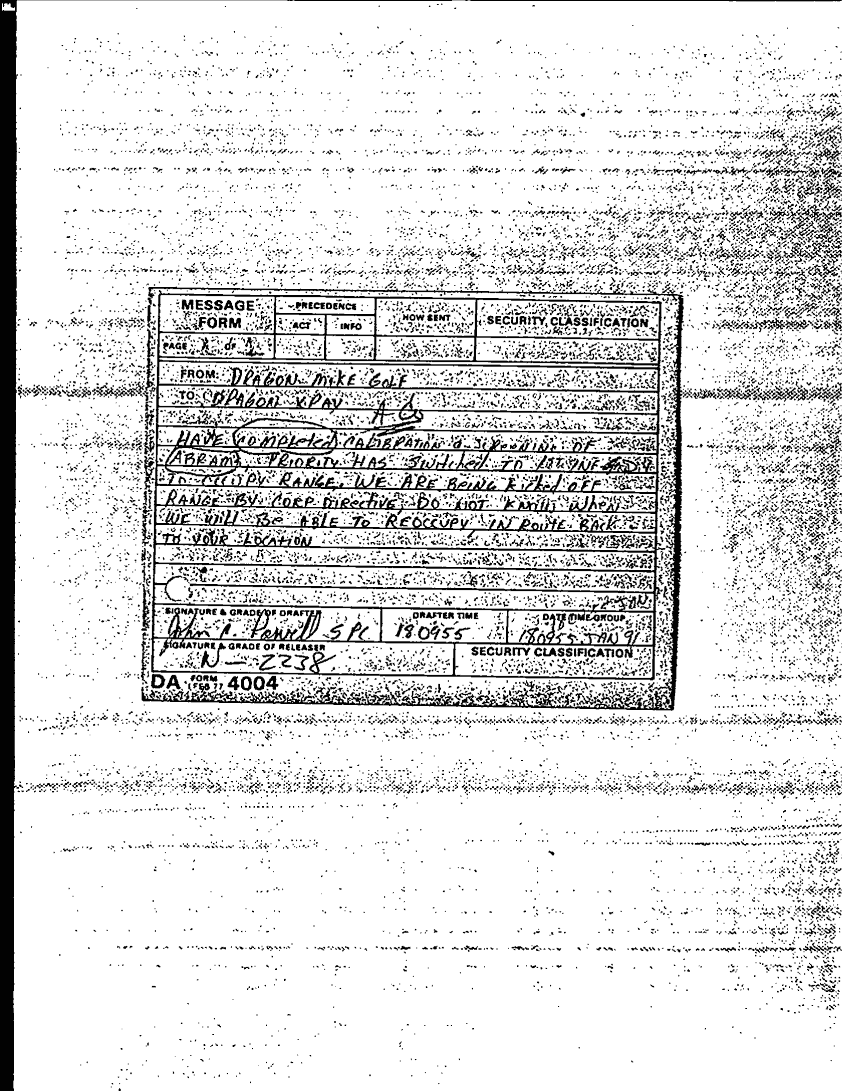 MESSAGE FORM
PRECEDENCE
ACT INFO
HOW SENT
SECURITY CLASSIFICATION
PAGE OF
FROM: DRAGON MIKE GOLF
TO XRAY
HAVE COMPLETED CALIBRATION & SCREENING OF
ABRAMS. PRIORITY HAS SWITCHED TO 1st INF
TO OCCUPY RANGE. WE ARE BEING KICKED OFF
RANGE BY CORP DIRECTIVE, DO NOT KNOW WHEN
WE WILL BE ABLE TO REOCCUPY IN ROUTE BACK
TO YOUR LOCATION
SIGNATURE & GRADE OF DRAFTER
DRAFTER TIME
DATE TIME GROUP
John SPC
180955
180955 JAN 91
SIGNATURE & GRADE OF RELEASER
SECURITY CLASSIFICATION
N-2238
DA FORM 4004
1 FEB 77